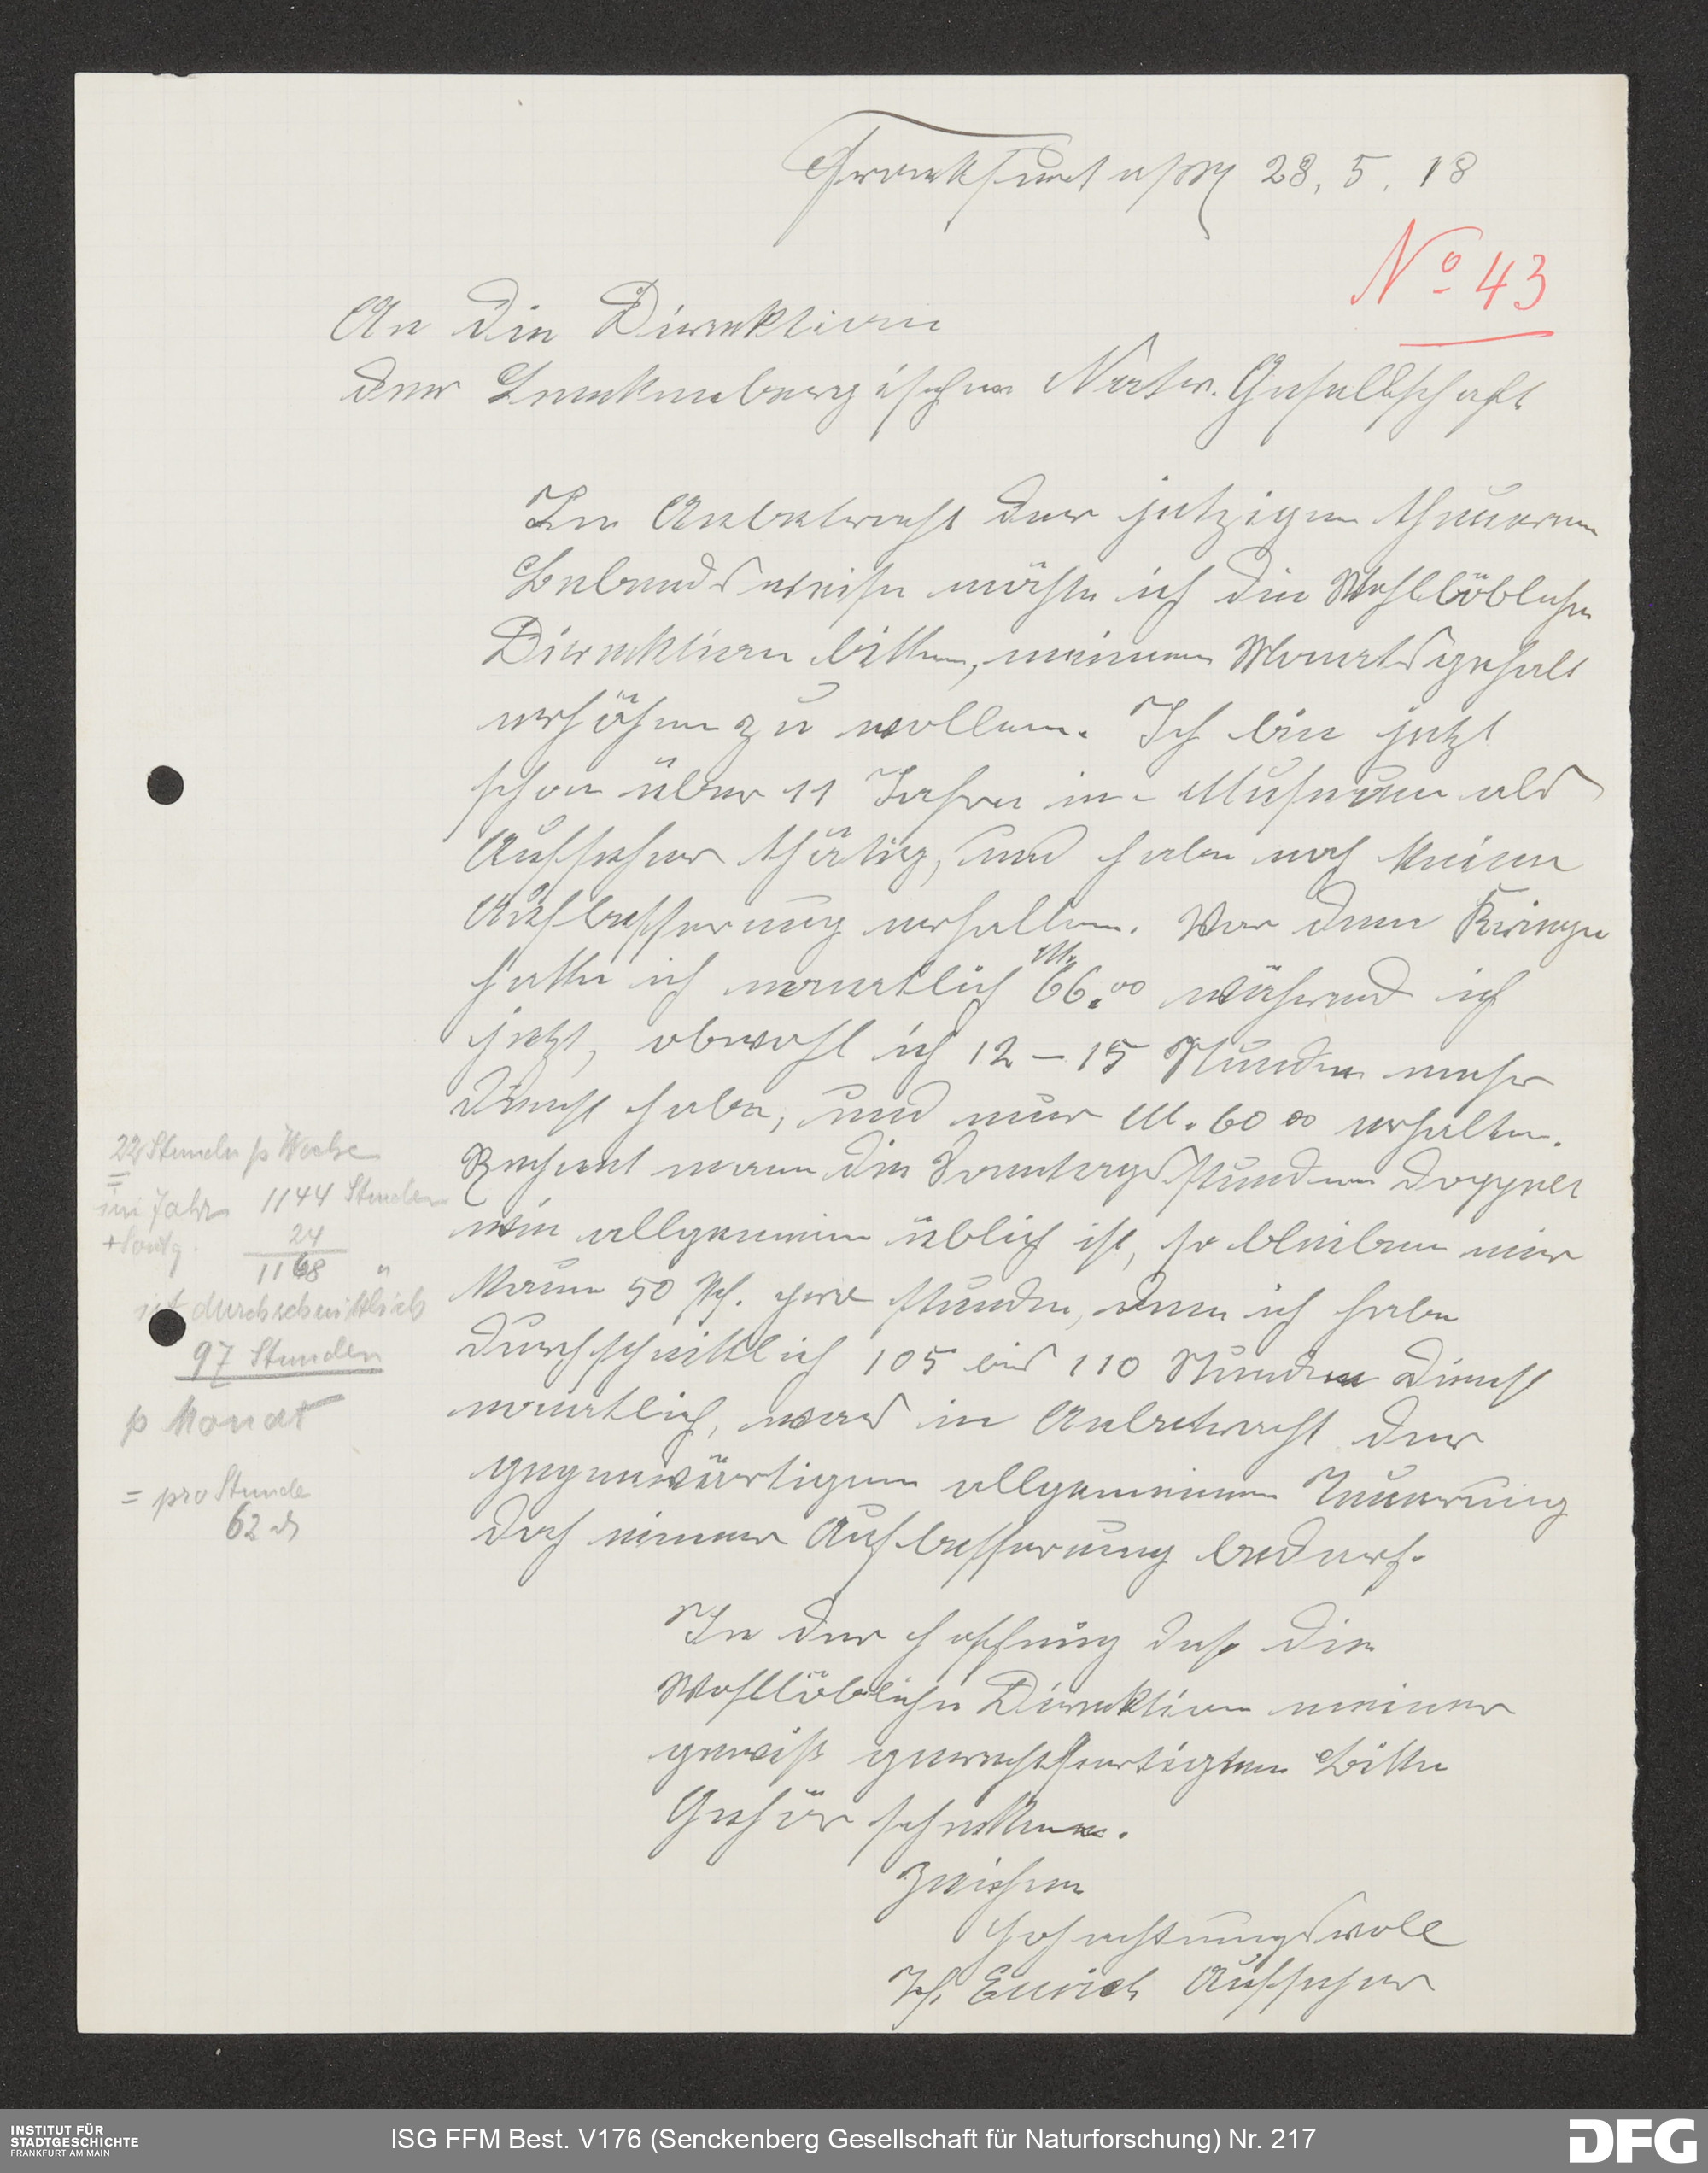 Frankfurt a/M 28. 5. 18
No 43
An die Direktion
der Senckenbergischen Natur. Gesellschaft
In Anbetracht der jetzigen theueren
Lebensweise möchte ich die Wohllöbliche
Direktion bitten, meinen Monatsgehalt
erhöhen zu wollen. Ich bin jetzt
schon über 11 Jahre im Museum als
Aufseher thätig, und habe noch keine
Aufbesserung erhalten. Vor dem Kriege
hatte ich monatlich M. 66.00 während ich
jetzt, obwohl ich 12 – 15 Stunden mehr
Dienst habe, und nur M. 60 00 erhalte.
Rechnet man die Sonntagsstunden doppelt
wie allgemein üblich ist, so bleiben mir
kaum 50 Pf. pro Stunde, denn ich habe
durchschnittlich 105 bis 110 Stunden Dienst
monatlich, was in Anbetracht der
gegenwärtigen allgemeinen Teuerung
doch einer Aufbesserung bedarf.
In der Hoffnung daß die
Wohllöbliche Direktion meiner
gewiß gerechtfertigten Bitte
Gehör schenken.
Zeichne
Hochachtungsvoll
Emich Aufseher
22 Stunden p Woche
=
im Jahr 1144 Stunden
+ Sontg. 24
1168 "
ist durchschnittlich
97 Stunden
p Monat
= pro Stunde
62 ₰
INSTITUT FÜR
STADTGESCHICHTE
FRANKFURT AM MAIN
ISG FFM Best. V176 (Senckenberg Gesellschaft für Naturforschung) Nr. 217
DFG